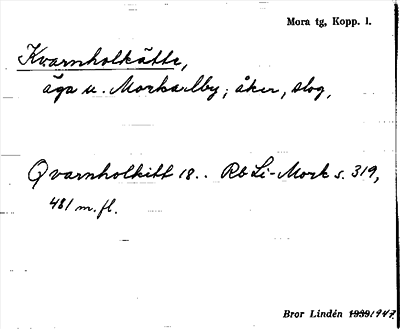 Mora tg, Kopp. l.
Kvarnholkätte,
äga u. Morkarlby; åker, slog,
Qvarnholkitt 18.. Rb Li-Mork s. 319,
481 m. fl.
Bror Lindén 1947.